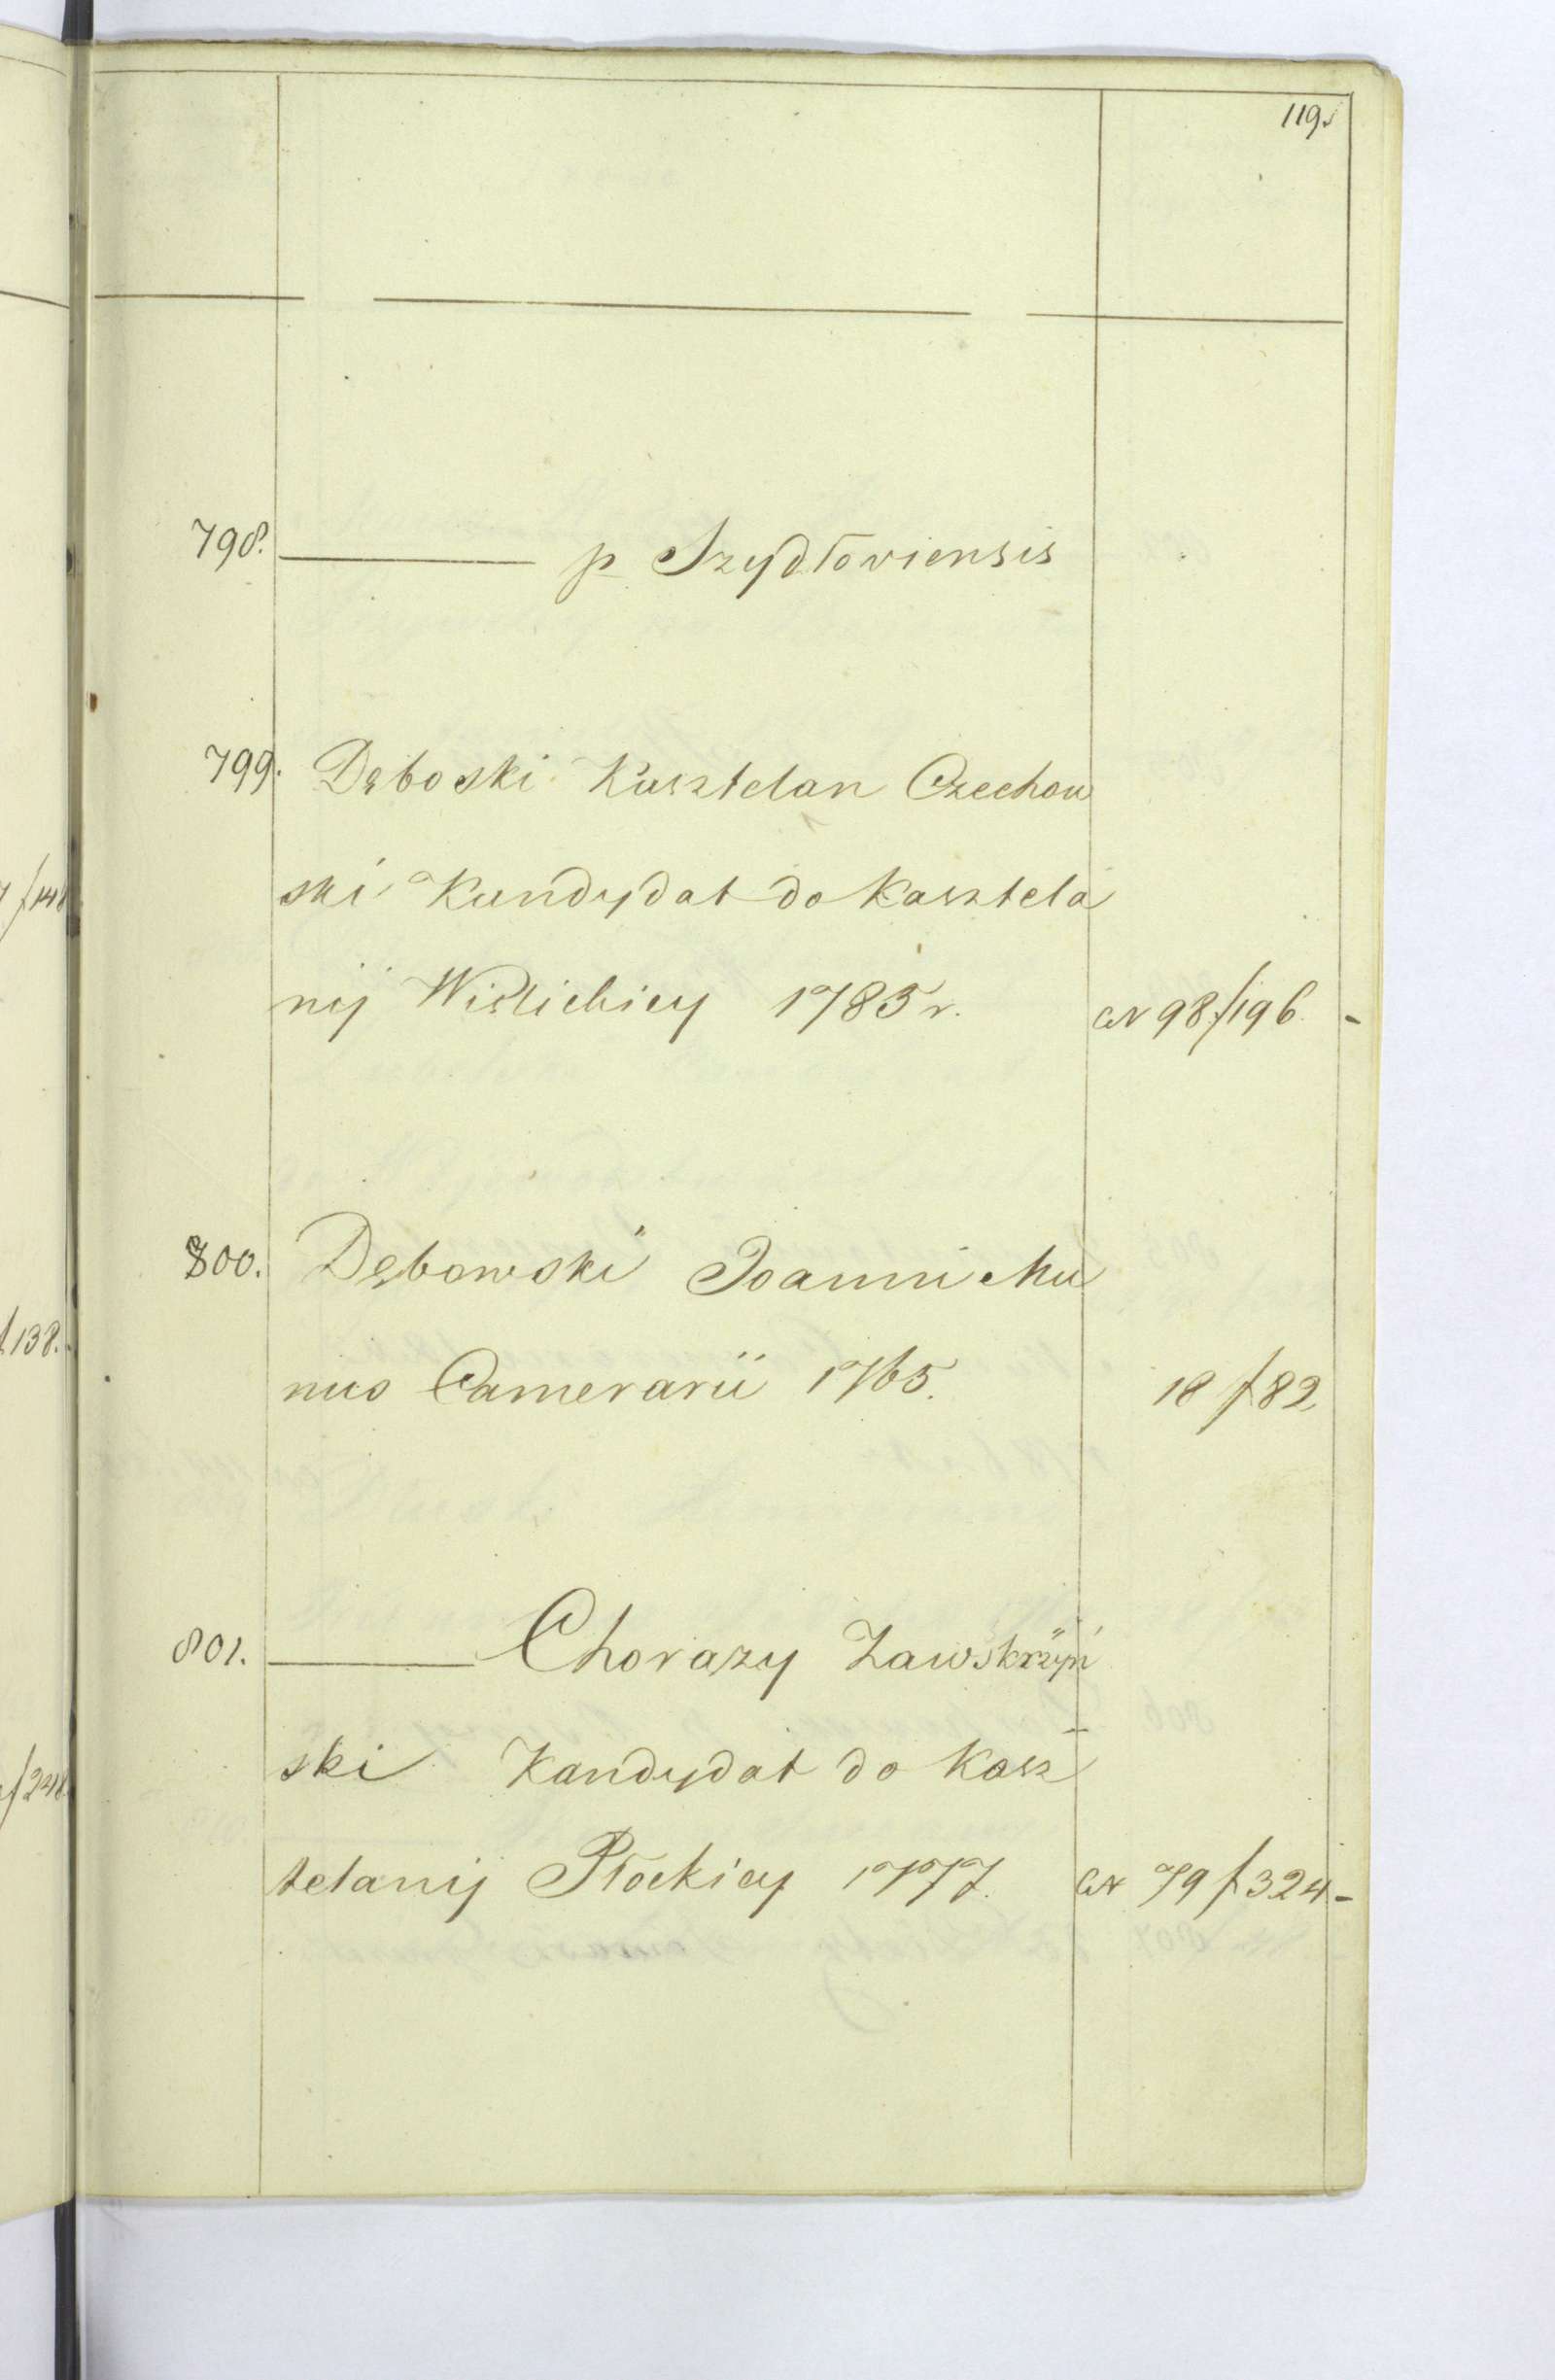 119.
798. ——— p Szydłoviensis
799. Dęboski Kasztelan Czechow
ski Kandydat do Kasztela
nij Wiślickiey 1785 r. CN 98 f 196. -
800. Dębowski Joanni Mu
nus Camerarii 1765. 18 f 82
801. ——— Chorazy Zawskrzyń
ski Kandydat do Kasz
telanij Płockiey 1777. CN 79 f 324 -
f 138.